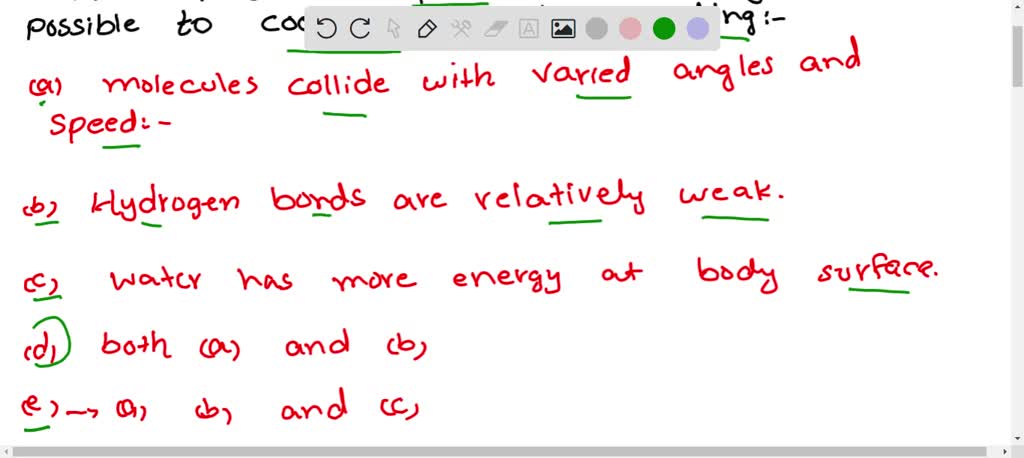 possible to
(a) molecules collide with varied angles and
speed:-
(b) Hydrogen bonds are relatively weak.
(c) water has more energy at body surface.
(d) both (a) and (b)
(e) → (a) (b) and (c)